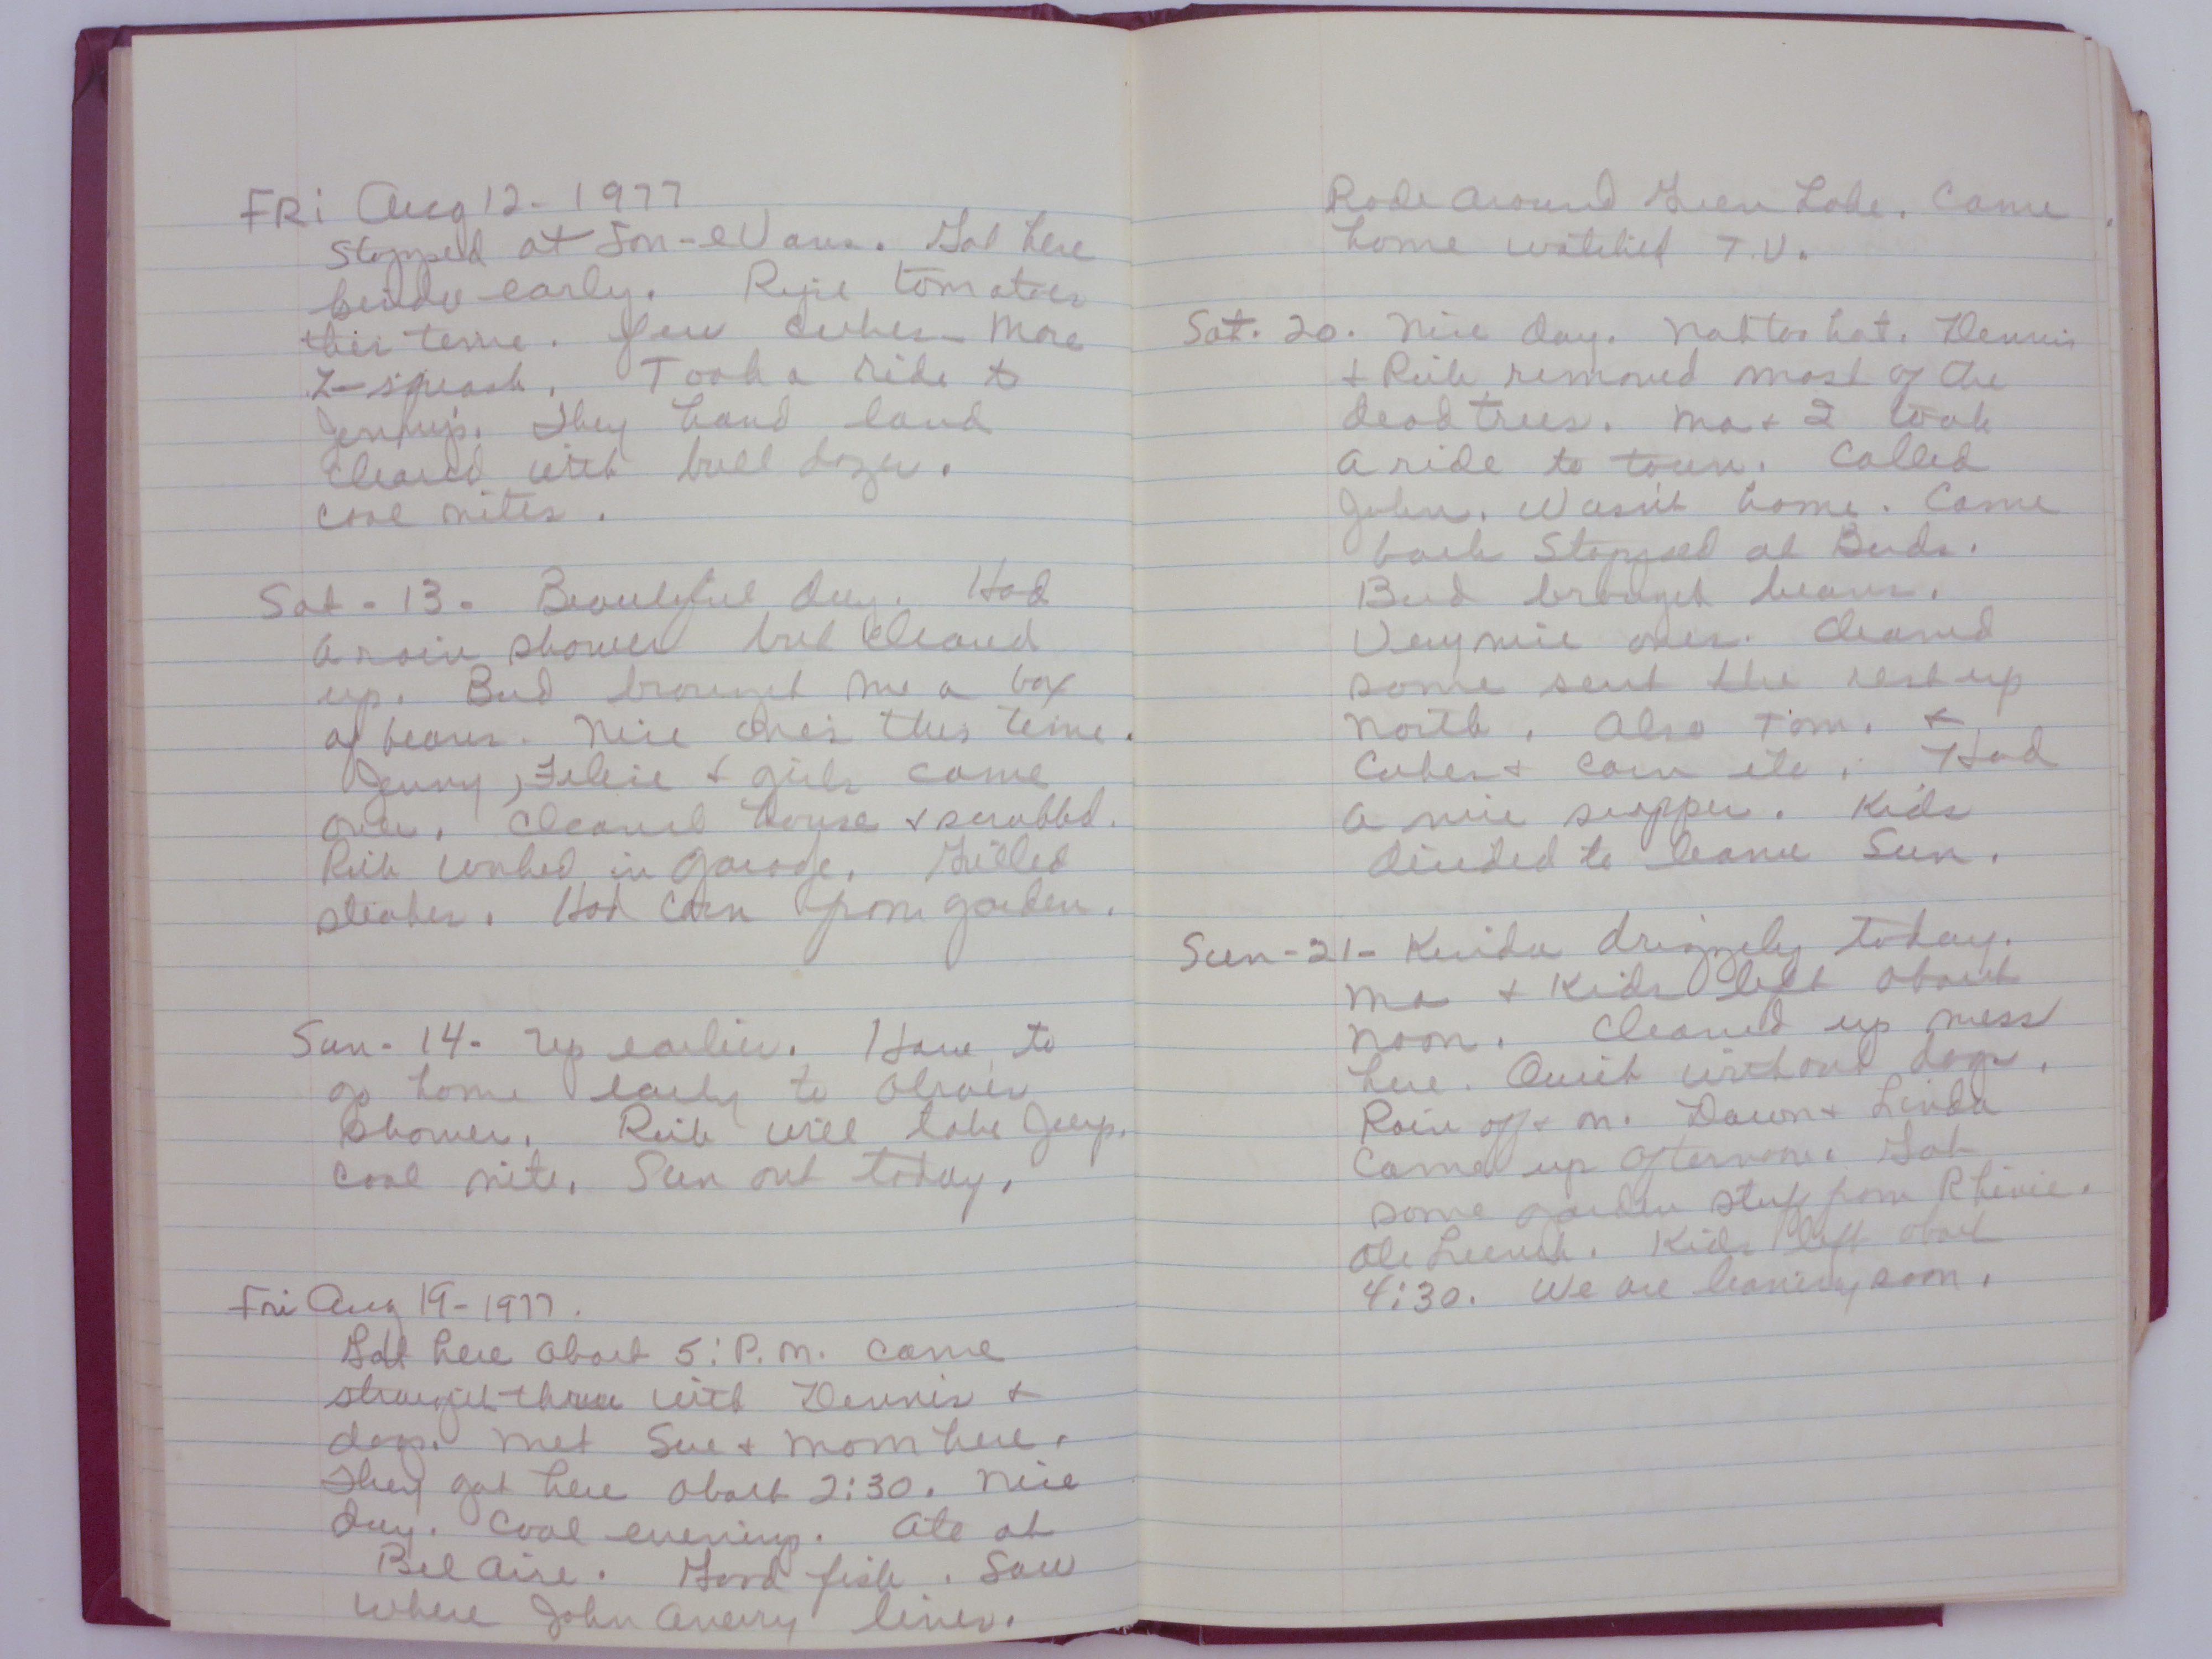 FRi Aug 12 - 1977
Stopped at Jon-e Vans. Got here
kinda early. Ripe tomatoes
this time. few cukes - more
Z-squash. Took a ride to
Jenny's. They hand land
cleared with bull dozer.
Cool nites.
Sat - 13 - Beautiful day. Had
a rain shower but cleared
up. Bud brought me a box
of beans. Nice ones this time.
Jenny, & girls came
over. Cleaned house & scrubbd.
Rich worked in garage. Grilled
steakes. Had corn from garden.
Sun - 14 - Up earlier. Have to
go home early to
shower. Rich will take Jeep.
Cool nite. Sun out today.
Fri Aug 19 - 1977.
Got here about 5: P.M. came
straight thru with Dennis &
dogs. Met Sue & Mom here.
They got here about 2:30. Nice
day. Cool evening. Ate at
Bel Aire. Good fish. Saw
where John Avery lives.
Rode around Green Lake. Came
home watched T.V.
Sat. 20. Nice day. Not too hot. Dennis
& Rich removed most of the
dead trees. Ma & I took
a ride to town. Called
John. Wasn't home. Came
back Stopped at Buds.
Bud brought beans.
Very nice ones. Cleaned
some sent the rest up
North. Also Tom. &
Cukes & Corn etc. Had
a nice supper. Kids
decided to leave Sun.
Sun - 21 - Kinda drizzely today.
Ma & Kids left about
noon. Cleaned up mess
here. Quiet without dogs.
Rain off & on. Dawn & Linda
Came up afternoon. Got
some garden stuff from
Ate Lunch. Kids left about
4:30. We are leaving soon.